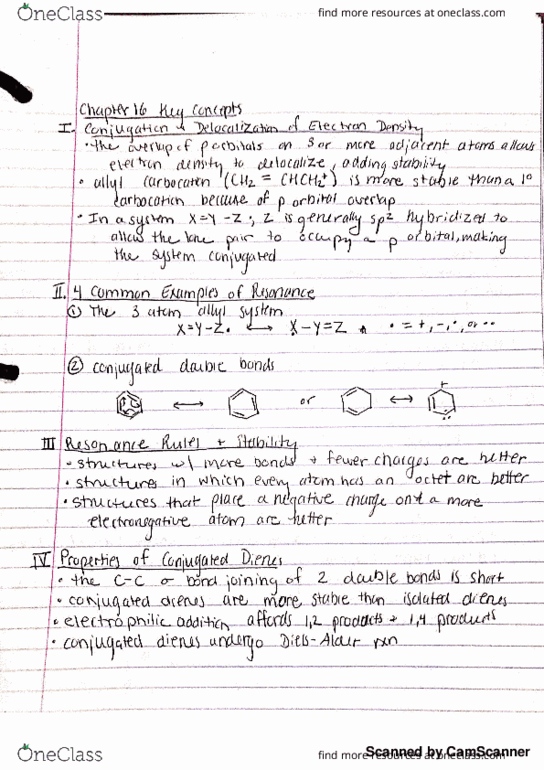 OneClass
find more resources at oneclass.com
Chapter 16 Key Concepts
I. Conjugation + Delocalization of Electron Density
• the overlap of p orbitals on 3 or more adjacent atoms allows
electron density to delocalize, adding stability
• allyl carbocation (CH2 = CHCH2+) is more stable than a 1°
carbocation because of p orbital overlap
• In a system X=Y-Z:, Z is generally sp² hybridized to
allow the lone pair to occupy a p orbital, making
the system conjugated
II. 4 Common Examples of Resonance
① The 3 atom allyl system
X=Y-Z• ⟷ X-Y=Z • = +, -, •, or ••
② conjugated double bonds
⟷ or ⟷ +
III Resonance Rules + Stability
• structures w/ more bonds + fewer charges are better
• structures in which every atom has an octet are better
• structures that place a negative charge on a more
electronegative atom are better
IV Properties of Conjugated Dienes
• the C-C σ bond joining of 2 double bonds is short
• conjugated dienes are more stable than isolated dienes
• electrophilic addition affords 1,2 products + 1,4 products
• conjugated dienes undergo Diels-Alder rxn
OneClass
find more resources at oneclass.com
Scanned by CamScanner